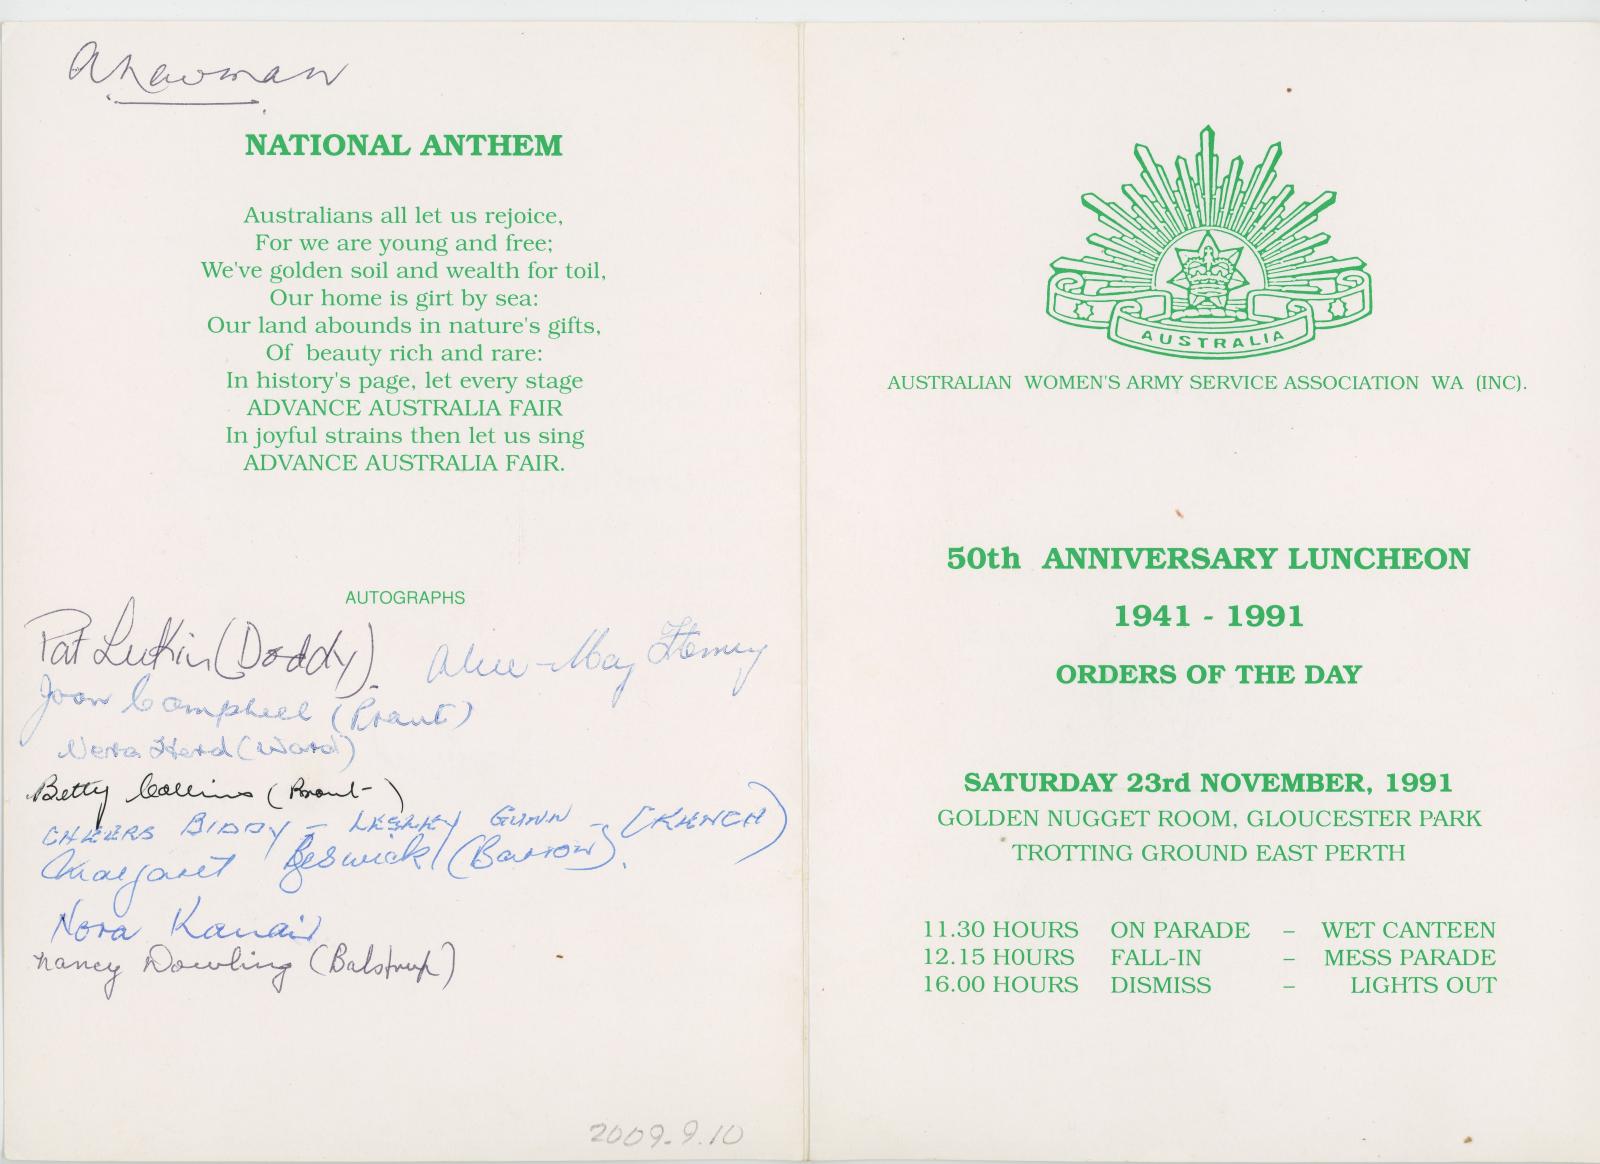 NATIONAL ANTHEM
Australians all let us rejoice,
For we are young and free;
We've golden soil and wealth for toil,
Our home is girt by sea:
Our land abounds in nature's gifts,
Of beauty rich and rare:
In history's page, let every stage
ADVANCE AUSTRALIA FAIR
In joyful strains then let us sing
ADVANCE AUSTRALIA FAIR.
AUTOGRAPHS
Pat Lutkin (Doddy).
May
Joan Campbell (Prout)
Herd (Ward)
Betty Collins (Prout)
CHEERS BIDDY - LESLEY GUNN - (KENCH)
Margaret Beswick (Barrow).
Nora
Nancy Dowling (Balstrup)
2009.9.10
AUSTRALIA
AUSTRALIAN WOMEN'S ARMY SERVICE ASSOCIATION WA (INC).
50th ANNIVERSARY LUNCHEON
1941 - 1991
ORDERS OF THE DAY
SATURDAY 23rd NOVEMBER, 1991
GOLDEN NUGGET ROOM, GLOUCESTER PARK
TROTTING GROUND EAST PERTH
11.30 HOURS ON PARADE – WET CANTEEN
12.15 HOURS FALL-IN – MESS PARADE
16.00 HOURS DISMISS – LIGHTS OUT